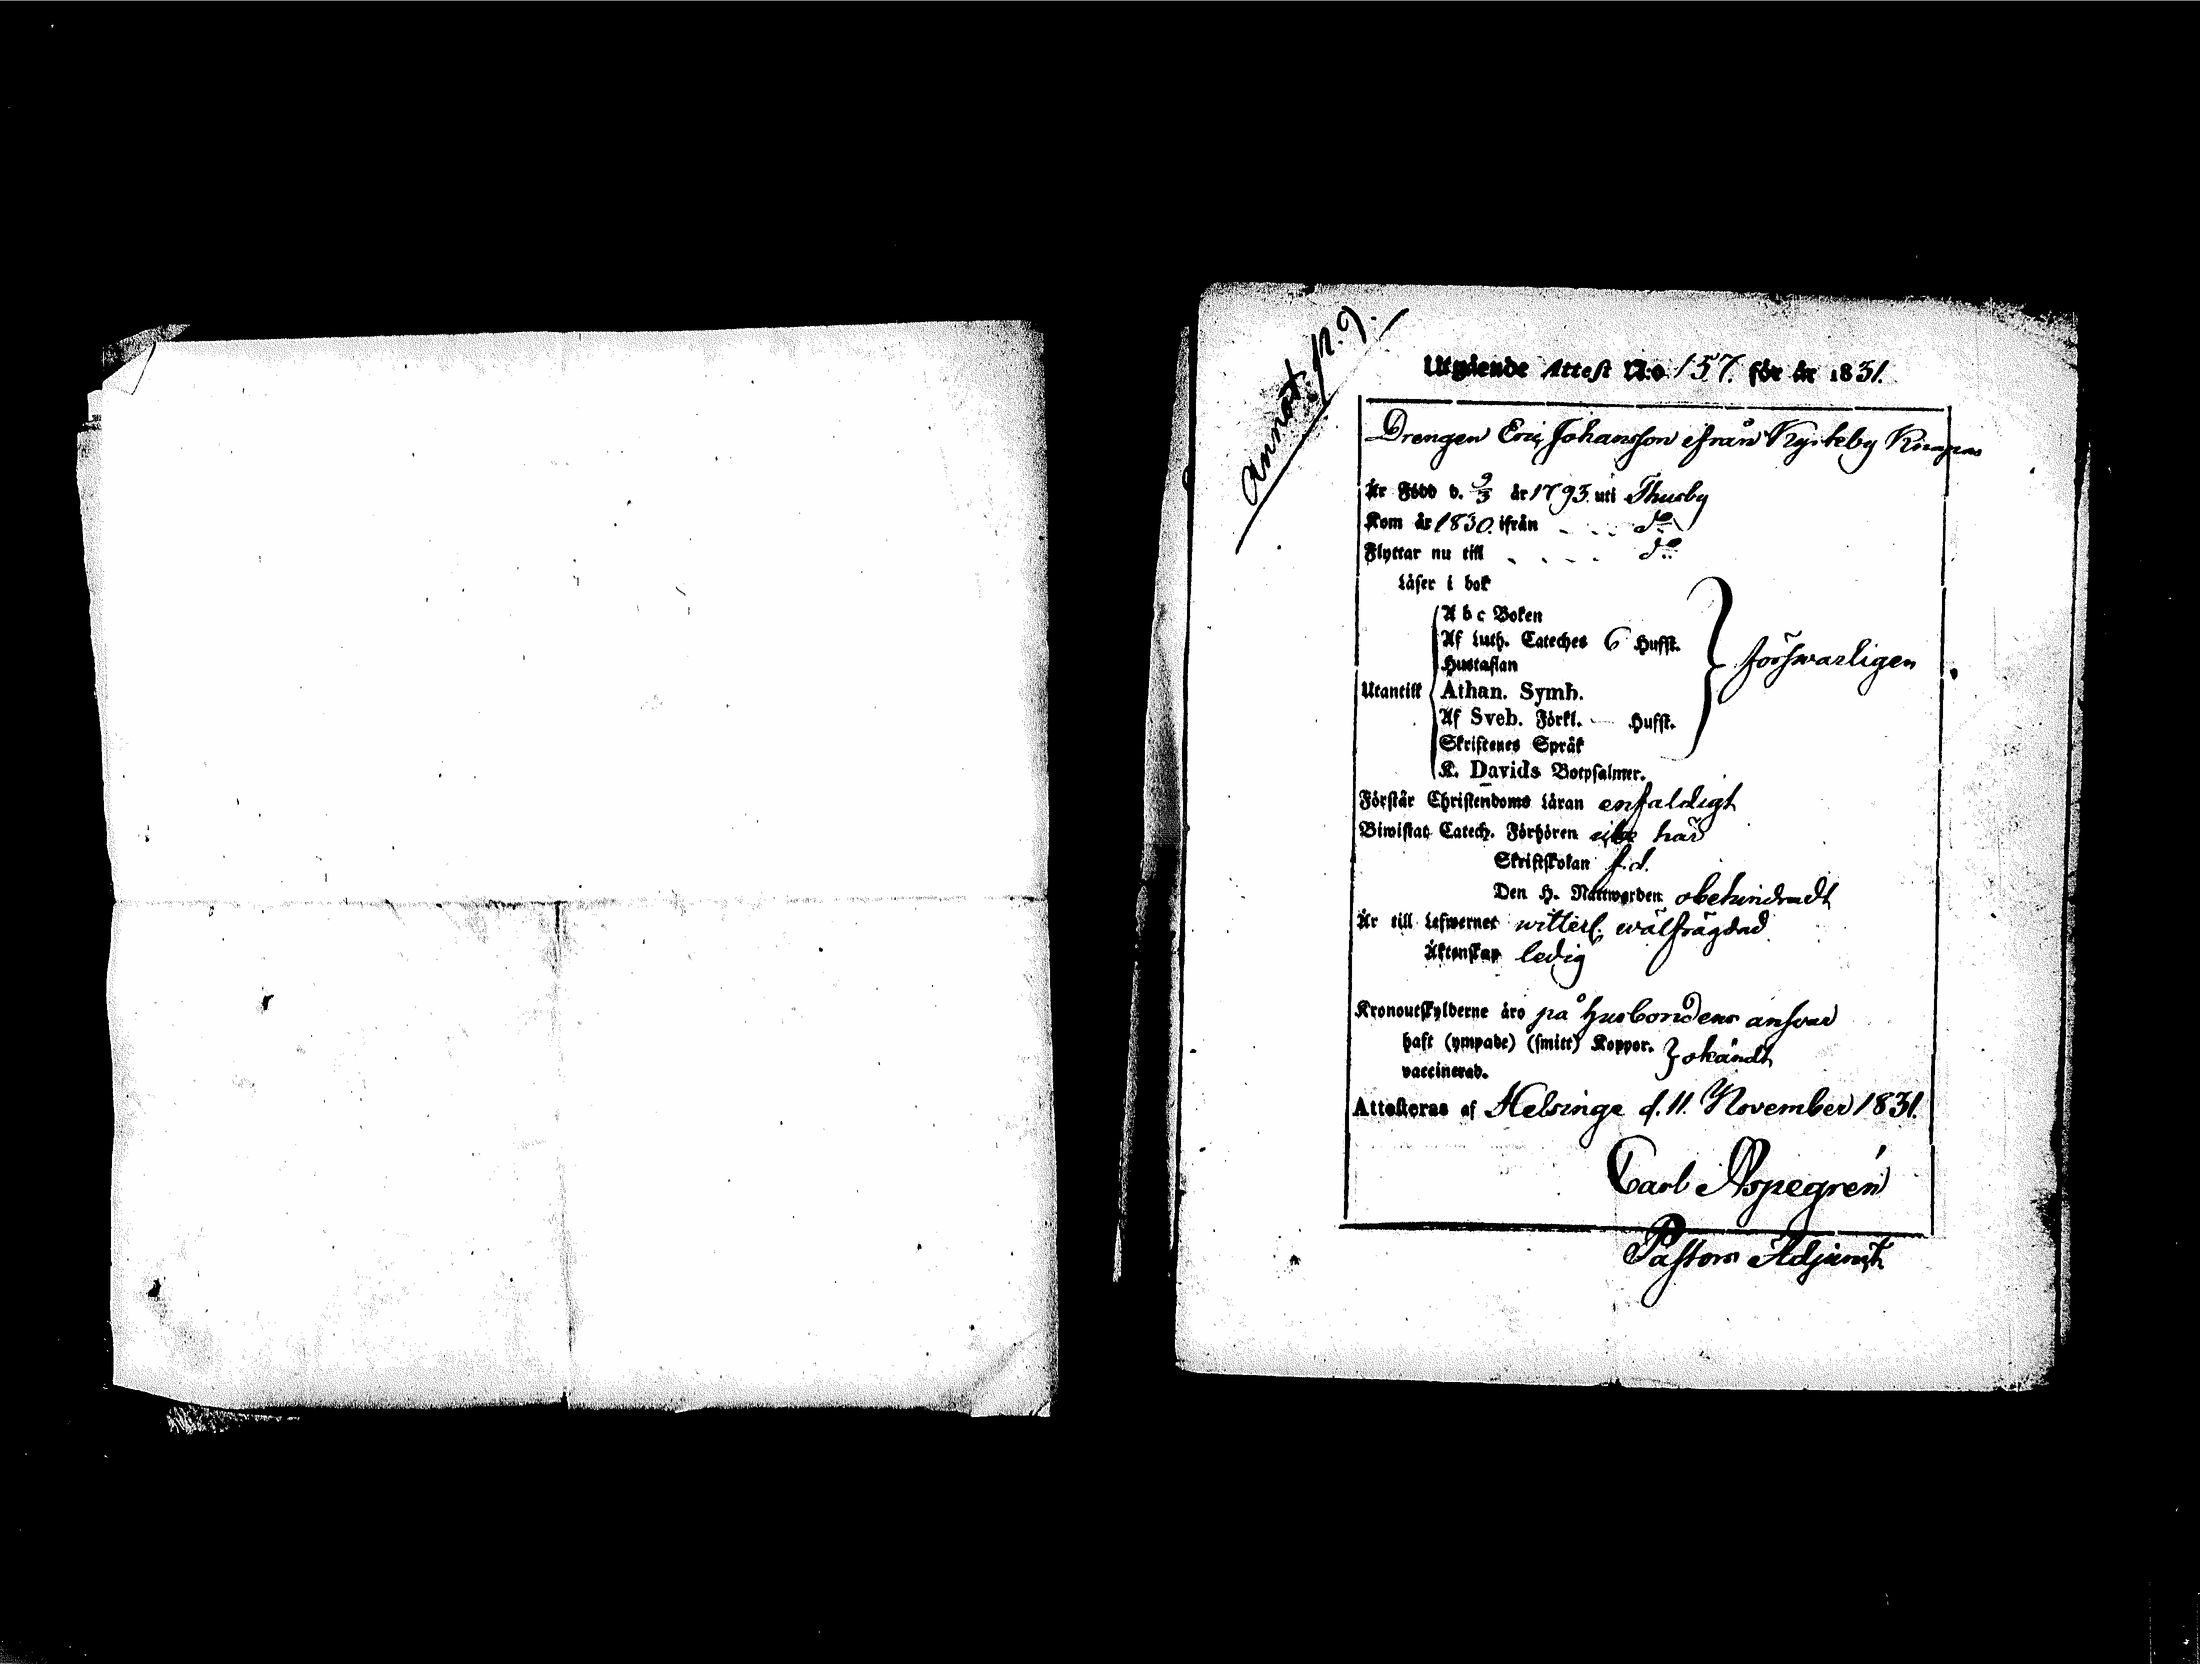 annot. p. 9.
Utgående Attest N:o 157. för år 1831.
Drengen Eric Johansson ifrån Kyrkeby
Är Född d. 9/3 år 1793. uti Thusby
Kom år 1830. ifrån - - - - do
Flyttar nu till - - - - do
Läser i bok
A b c Boken
Af Luth. Cateches 6 Hufst.
Hustaflan
försvarligen
Utantill Athan. Symb.
Af Sveb. Förkl. — Hufst.
Skriftenes Språk
K. Davids Botpsalmer.
Förstår Christendoms Läran enfaldigt
Biwistat Catech. Förhören icke här
Skriftskolan f.d.
Den H. Nattwarden obehindradt
Är till Lefwernet witterl. wälfrägdad
Äktenskap ledig
Kronoutskylderne äro på husbondens answar
haft (ympade) (smitt) Koppor. } okändt
vaccinerad.
Attesteras af Helsinge d. 11. November 1831.
Carl Aspegrén
Pastors Adjunct